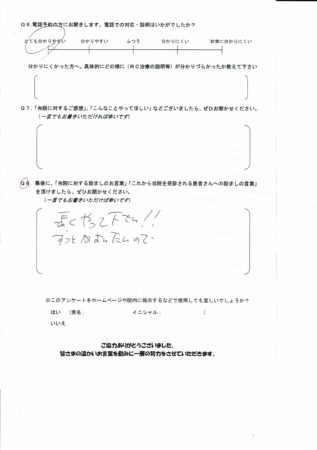 Q6.電話予約の方にお聞きします。電話での対応・説明はいかがでしたか？
とても分かりやすい 分かりやすい ふつう 分かりにくい 非常に分かりにくい
分かりにくかった方へ。具体的にどの様に（RC治療の説明等）が分かりづらかったか教えて下さい
Q7.「当院に対するご感想」、「こんなことやってほしい」などございましたら、ぜひお聞かせください。
（一言でもお書きいただければ幸いです）
Q8.最後に、「当院に対する励ましのお言葉」「これから当院を受診される患者さんへの励ましの言葉」
を頂けましたら、ぜひお聞かせください。
（一言でもお書きいただければ幸いです）
長くやって下さい!!
ずっとかよいたいので
※このアンケートをホームページや院内に掲示するなどで使用しても宜しいでしょうか？
はい （実名： イニシャル： ）
いいえ
ご協力ありがとうございました。
皆さまの温かいお言葉を励みに一層の努力をさせていただきます。